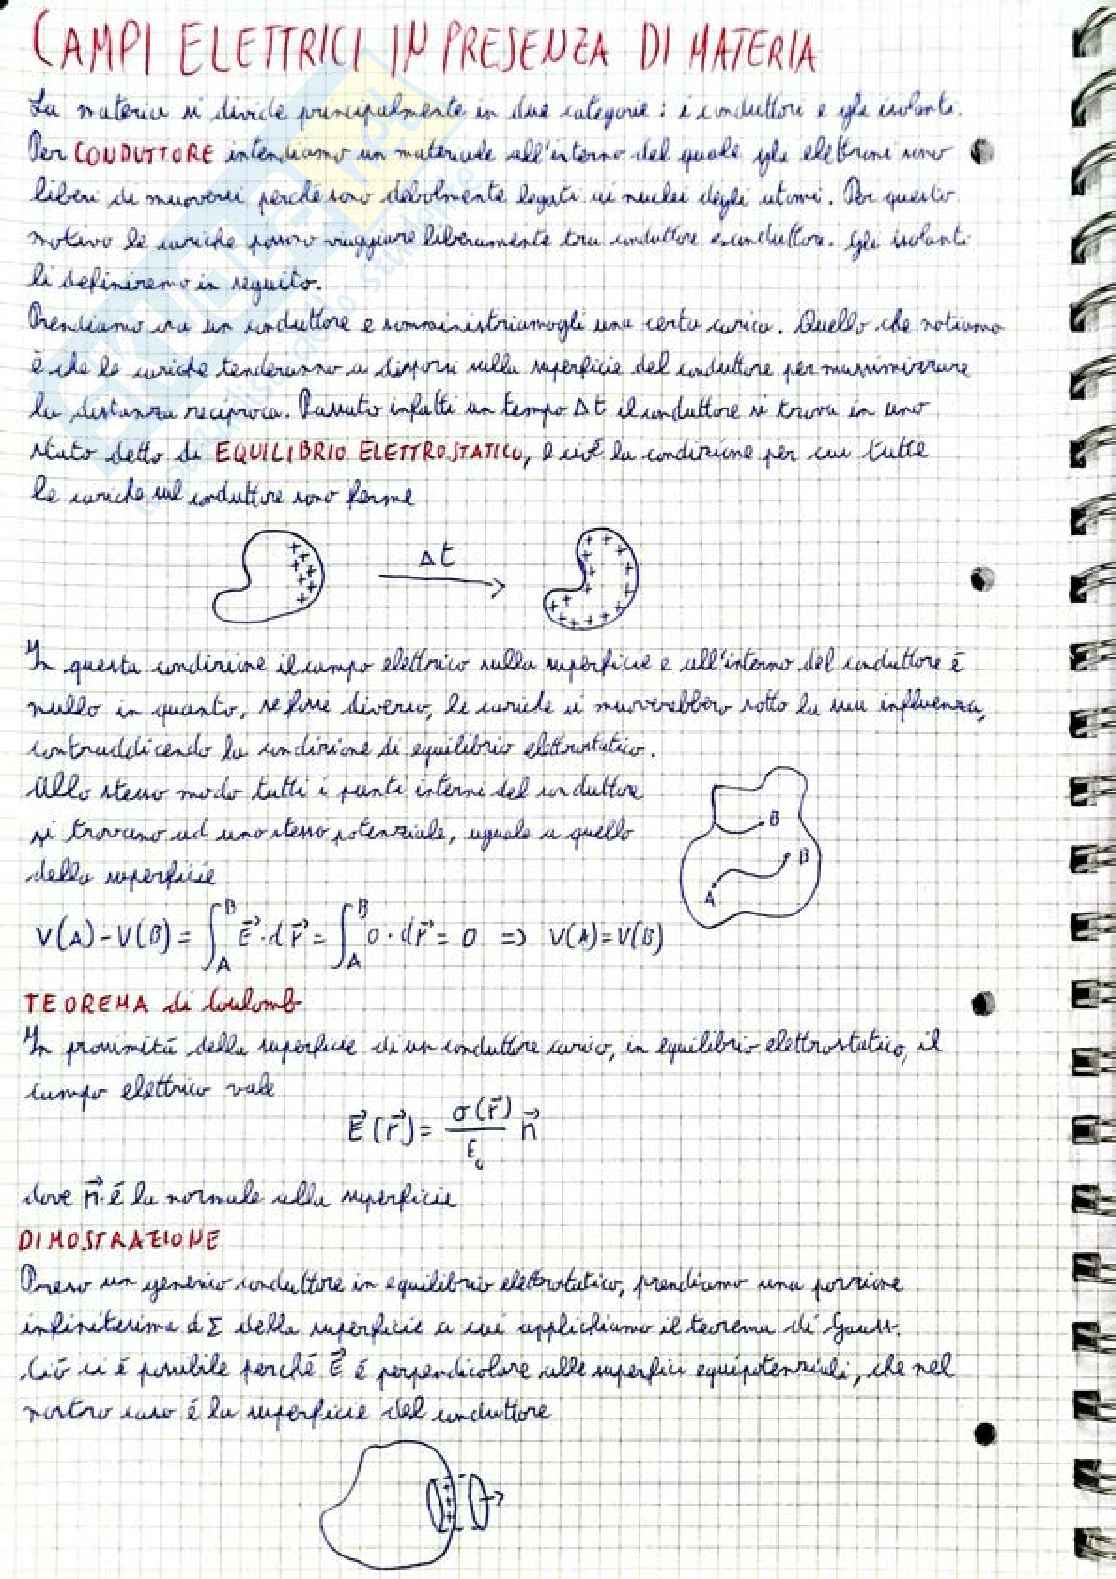 CAMPI ELETTRICI IN PRESENZA DI MATERIA
La materia si divide principalmente in due categorie: i conduttori e gli isolanti.
Per CONDUTTORE intendiamo un materiale all'interno del quale gli elettroni sono
liberi di muoversi perché sono debolmente legati ai nuclei degli atomi. Per questo
motivo le cariche possono viaggiare liberamente tra conduttore e conduttore. Gli isolanti
li definiremo in seguito.
Prendiamo ora un conduttore e somministriamogli una certa carica. Quello che notiamo
è che le cariche tenderanno a disporsi sulla superficie del conduttore per massimizzare
la distanza reciproca. Passato infatti un tempo Δt il conduttore si trova in uno
stato detto di EQUILIBRIO ELETTROSTATICO, e cioè la condizione per cui tutte
le cariche sul conduttore sono ferme
Δt
In questa condizione il campo elettrico sulla superficie e all'interno del conduttore è
nullo in quanto, se fosse diverso, le cariche si muoverebbero sotto la sua influenza,
contraddicendo la condizione di equilibrio elettrostatico.
Allo stesso modo tutti i punti interni del conduttore
si trovano ad uno stesso potenziale, uguale a quello
della superficie
B
B
A
V(A)-V(B) = ∫_A^B E⃗·dr⃗ = ∫_A^B 0·dr⃗ = 0 => V(A)=V(B)
TEOREMA di Coulomb
In prossimità della superficie di un conduttore carico, in equilibrio elettrostatico, il
campo elettrico vale
E⃗(r⃗) = σ(r⃗)/ε₀ n⃗
dove n⃗ è la normale alla superficie
DIMOSTRAZIONE
Preso un generico conduttore in equilibrio elettrostatico, prendiamo una porzione
infinitesima dΣ della superficie a cui applichiamo il teorema di Gauss.
Ciò ci è possibile perché E⃗ è perpendicolare alle superfici equipotenziali, che nel
nostro caso è la superficie del conduttore